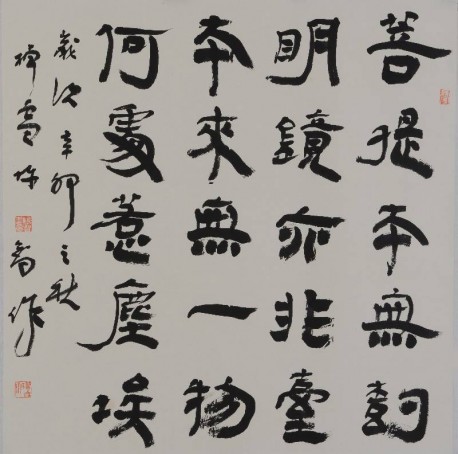 菩提本無樹
明鏡亦非臺
本來無一物
何處惹塵埃
歲次辛卯之秋
雪 作